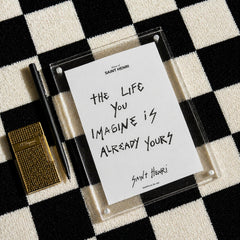 SAINT HENRI
THE LIFE
YOU
IMAGINE IS
ALREADY YOURS
SAINT HENRI